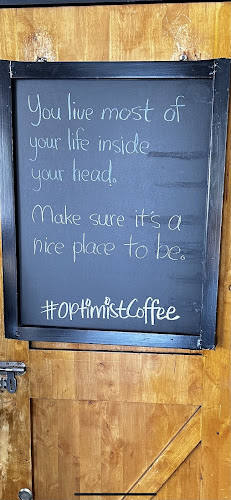 You live most of
your life inside
your head.
Make sure it's a
nice place to be.
#optimistCoffee